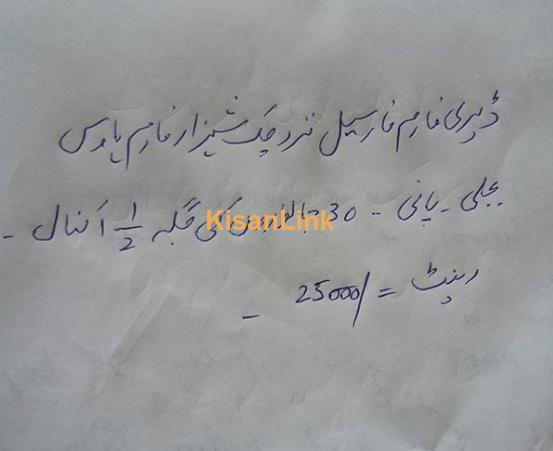 ڈیری فارم فار سیل نزد چک شیزار فارم ہاوس
بجلی - پانی - 30 جانوروں کی جگہ 1/2 1 کنال -
KisanLink
رینٹ = 25000/ -